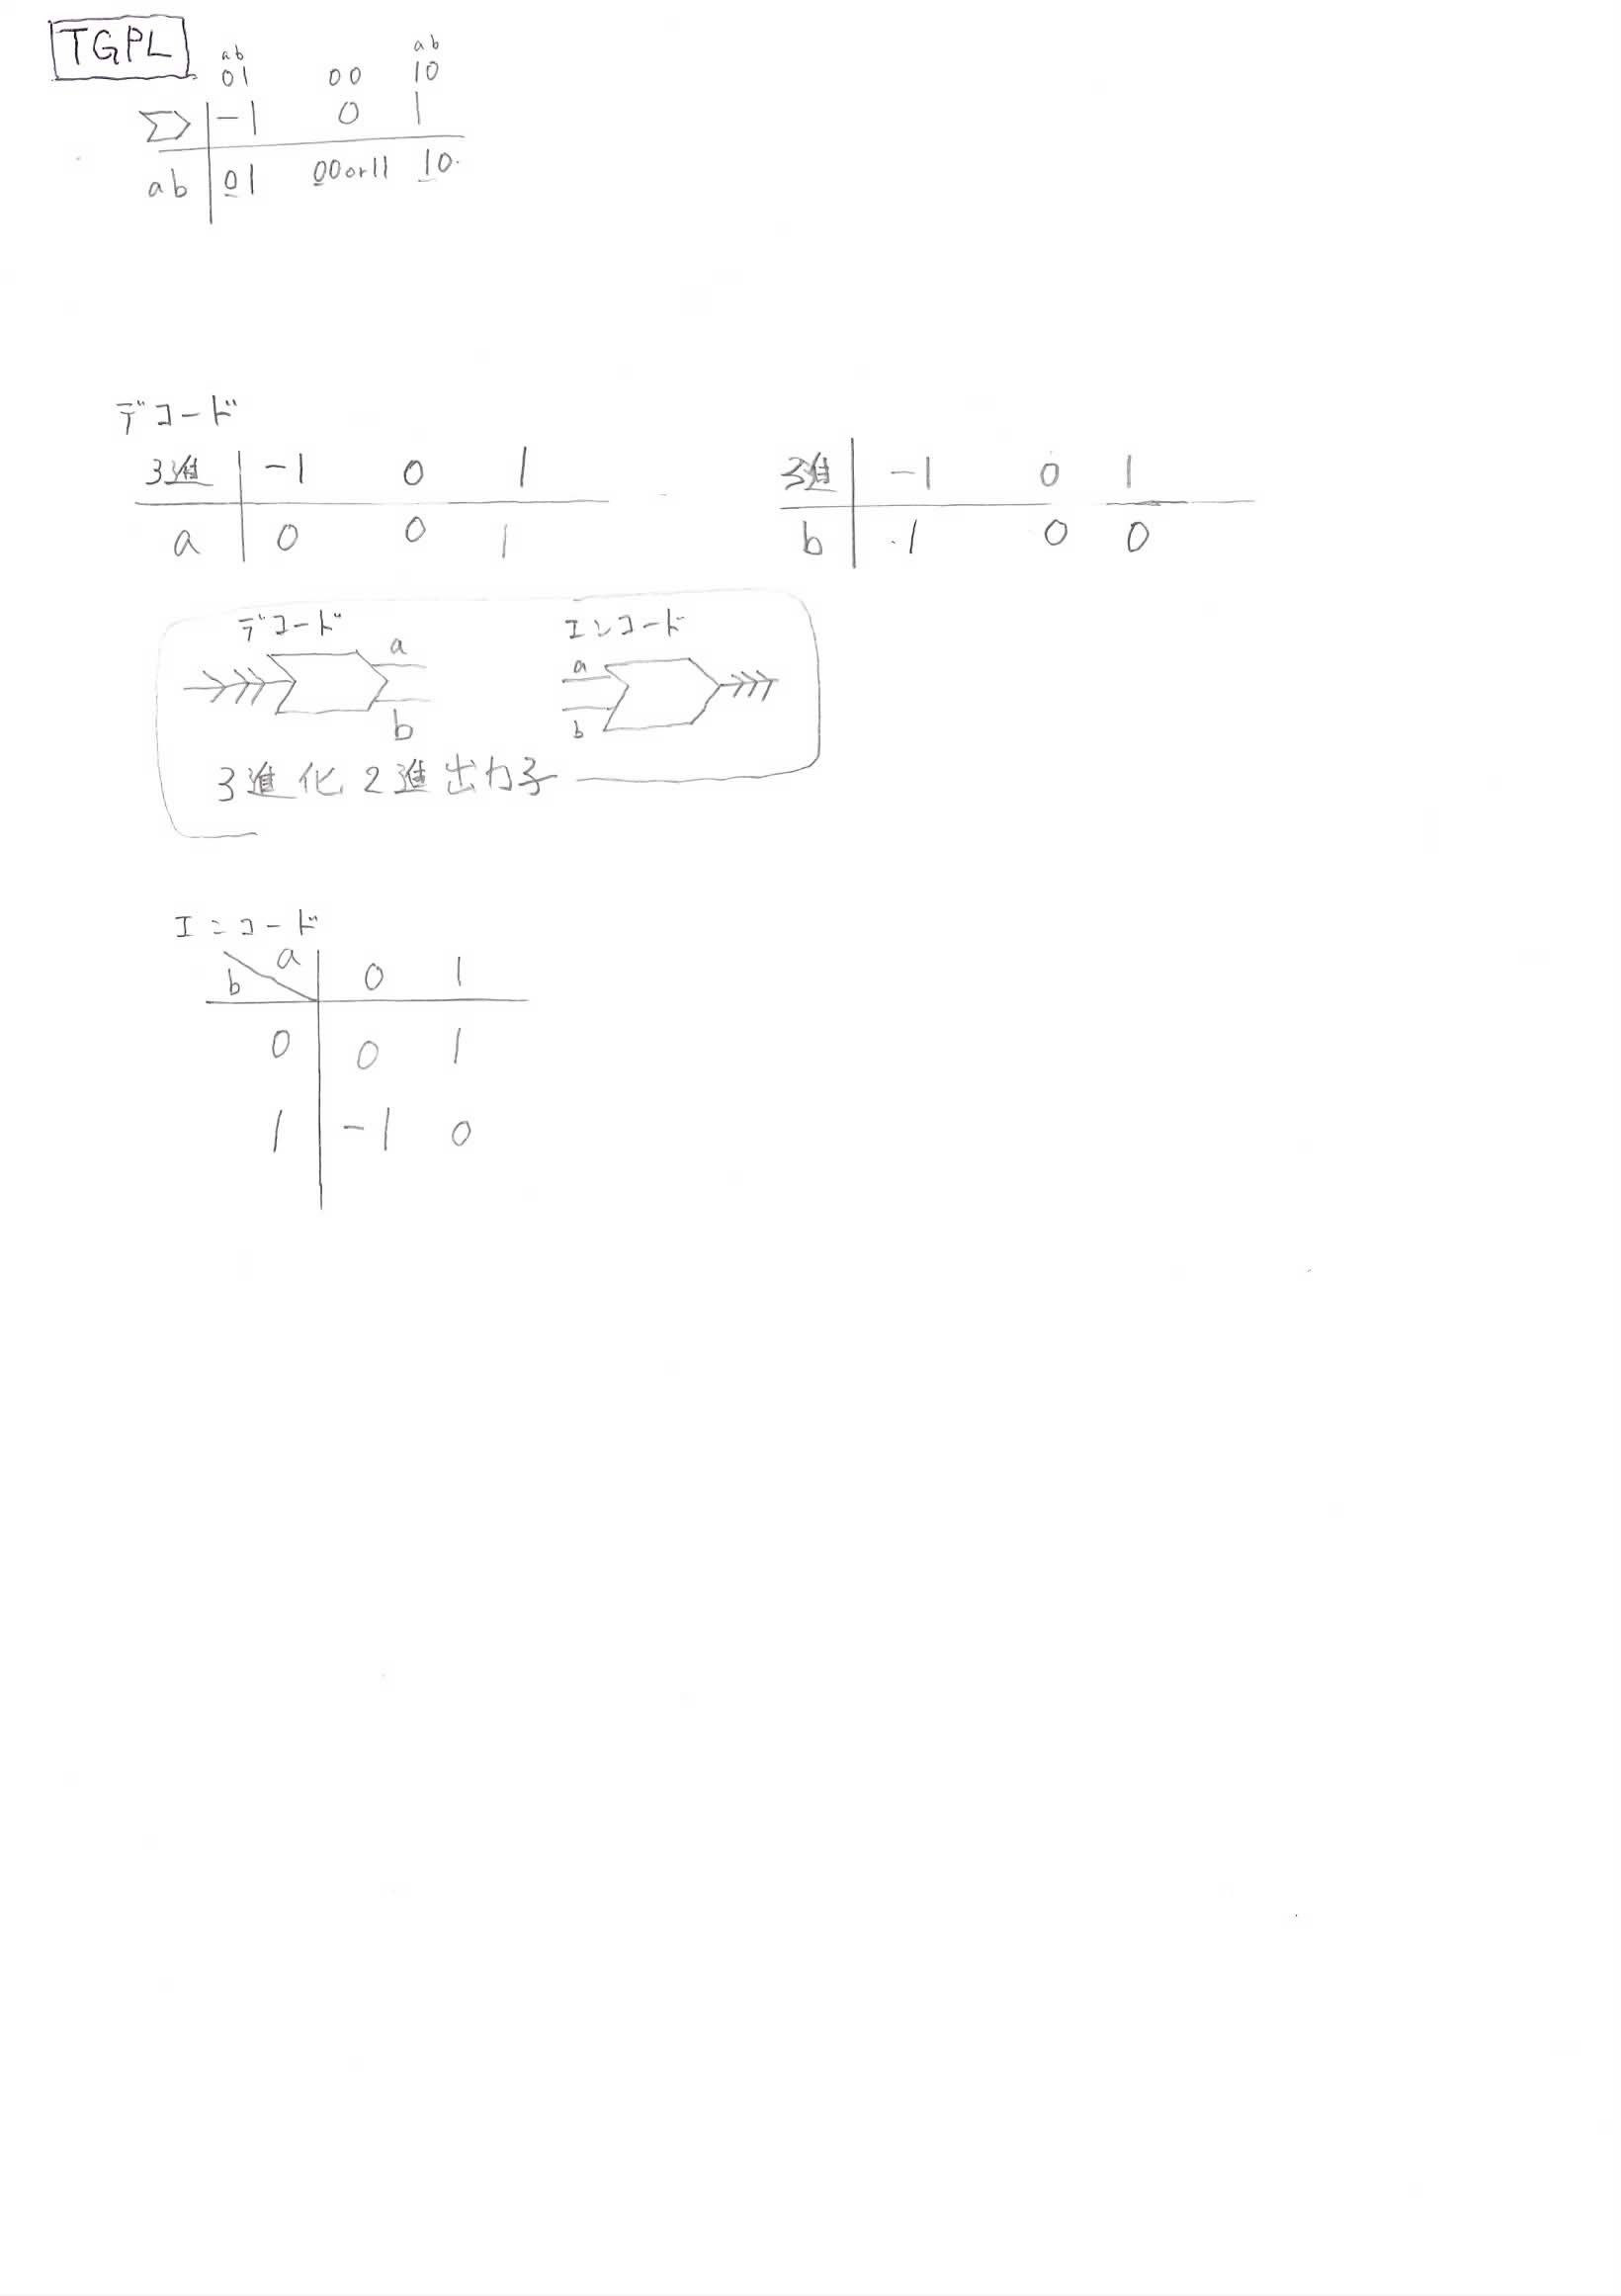 TGPL
ab ab
01 00 10
-1 0 1
ab 01 00or11 10
デコード
3進 -1 0 1
a 0 0 1
3進 -1 0 1
b 1 0 0
デコード
a
b
エンコード
a
b
3進化2進出力子
エンコード
a
b
0 1
0 0 1
1 -1 0